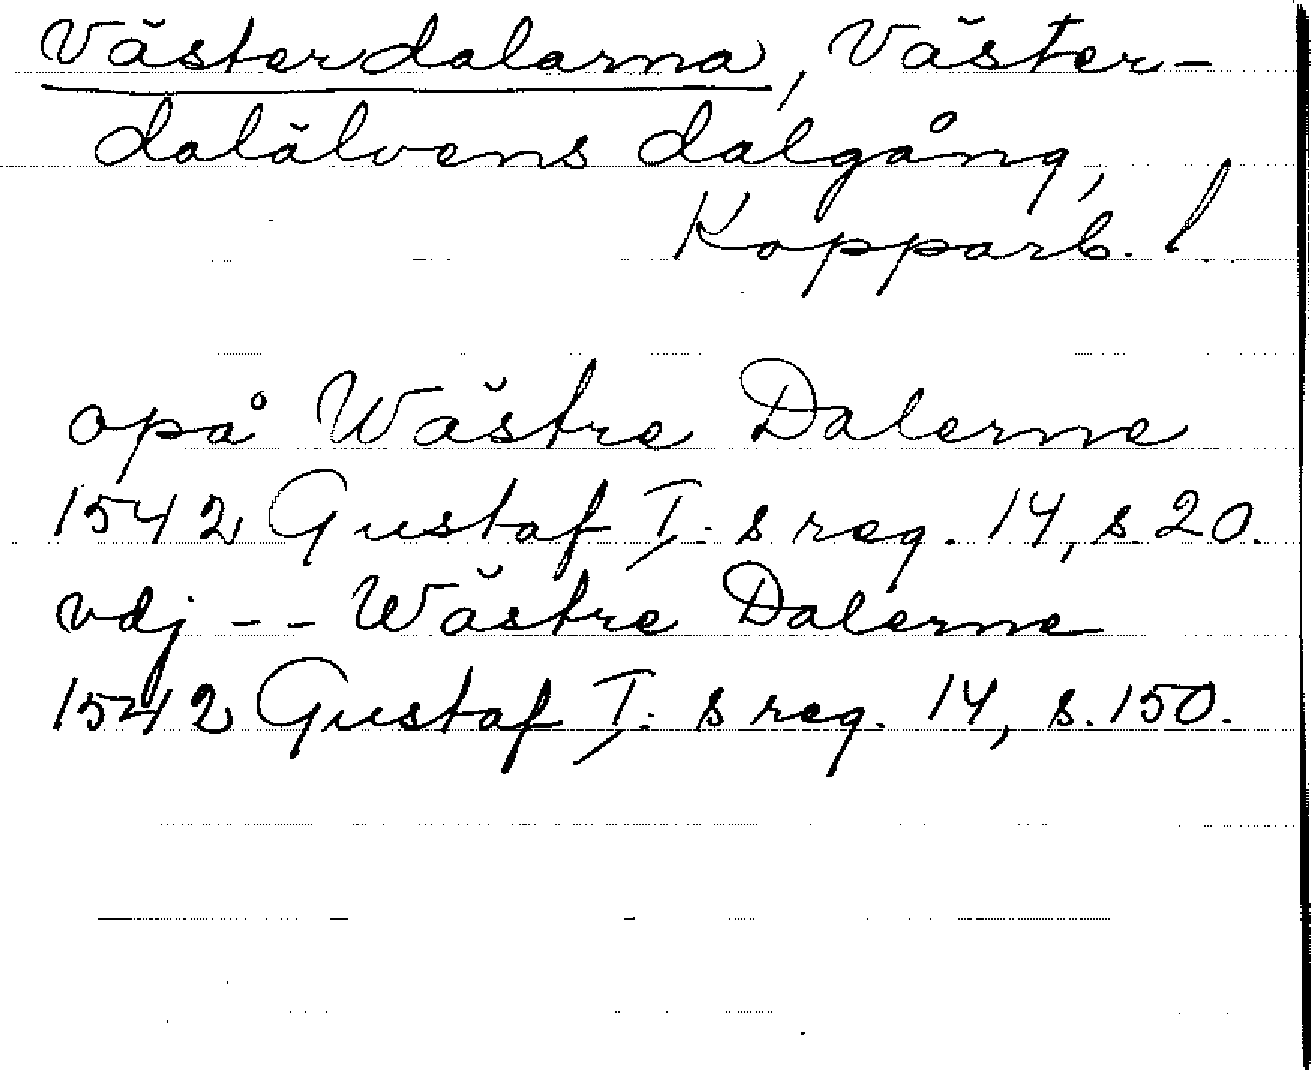 Västerdalarna, Väster-
dalälvens dalgång,
Kopparb. l.
opå Wästre Dalerne
1542 Gustaf I:s reg. 14, s. 20.
vdj -- Wästre Dalerne
1542 Gustaf I:s reg. 14, s. 150.